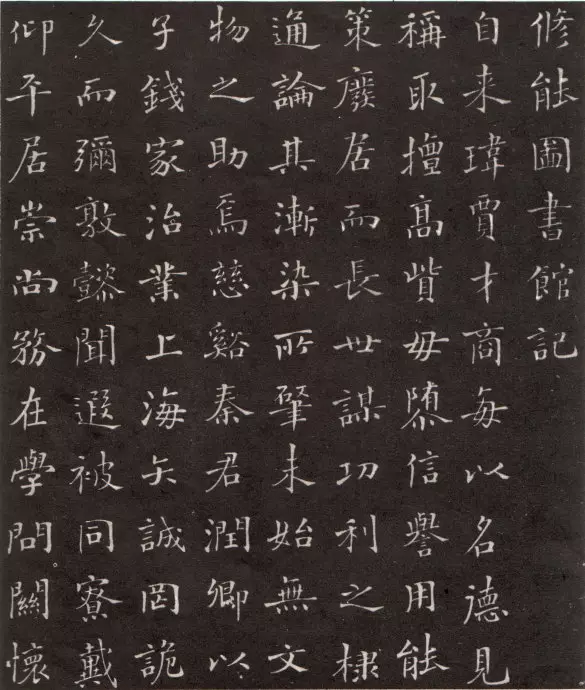 修能圖書館記
自来瑋賈才商每以名德見
稱取擅高貲毋信譽用能
策廢居而長世謀功利之棣
通論其漸染所肇未始無文
物之助焉慈谿秦君潤卿以
子錢家治業上海矢誠罔詭
久而彌敦懿聞遐被同寮戴
仰平居崇尚務在學問關懷